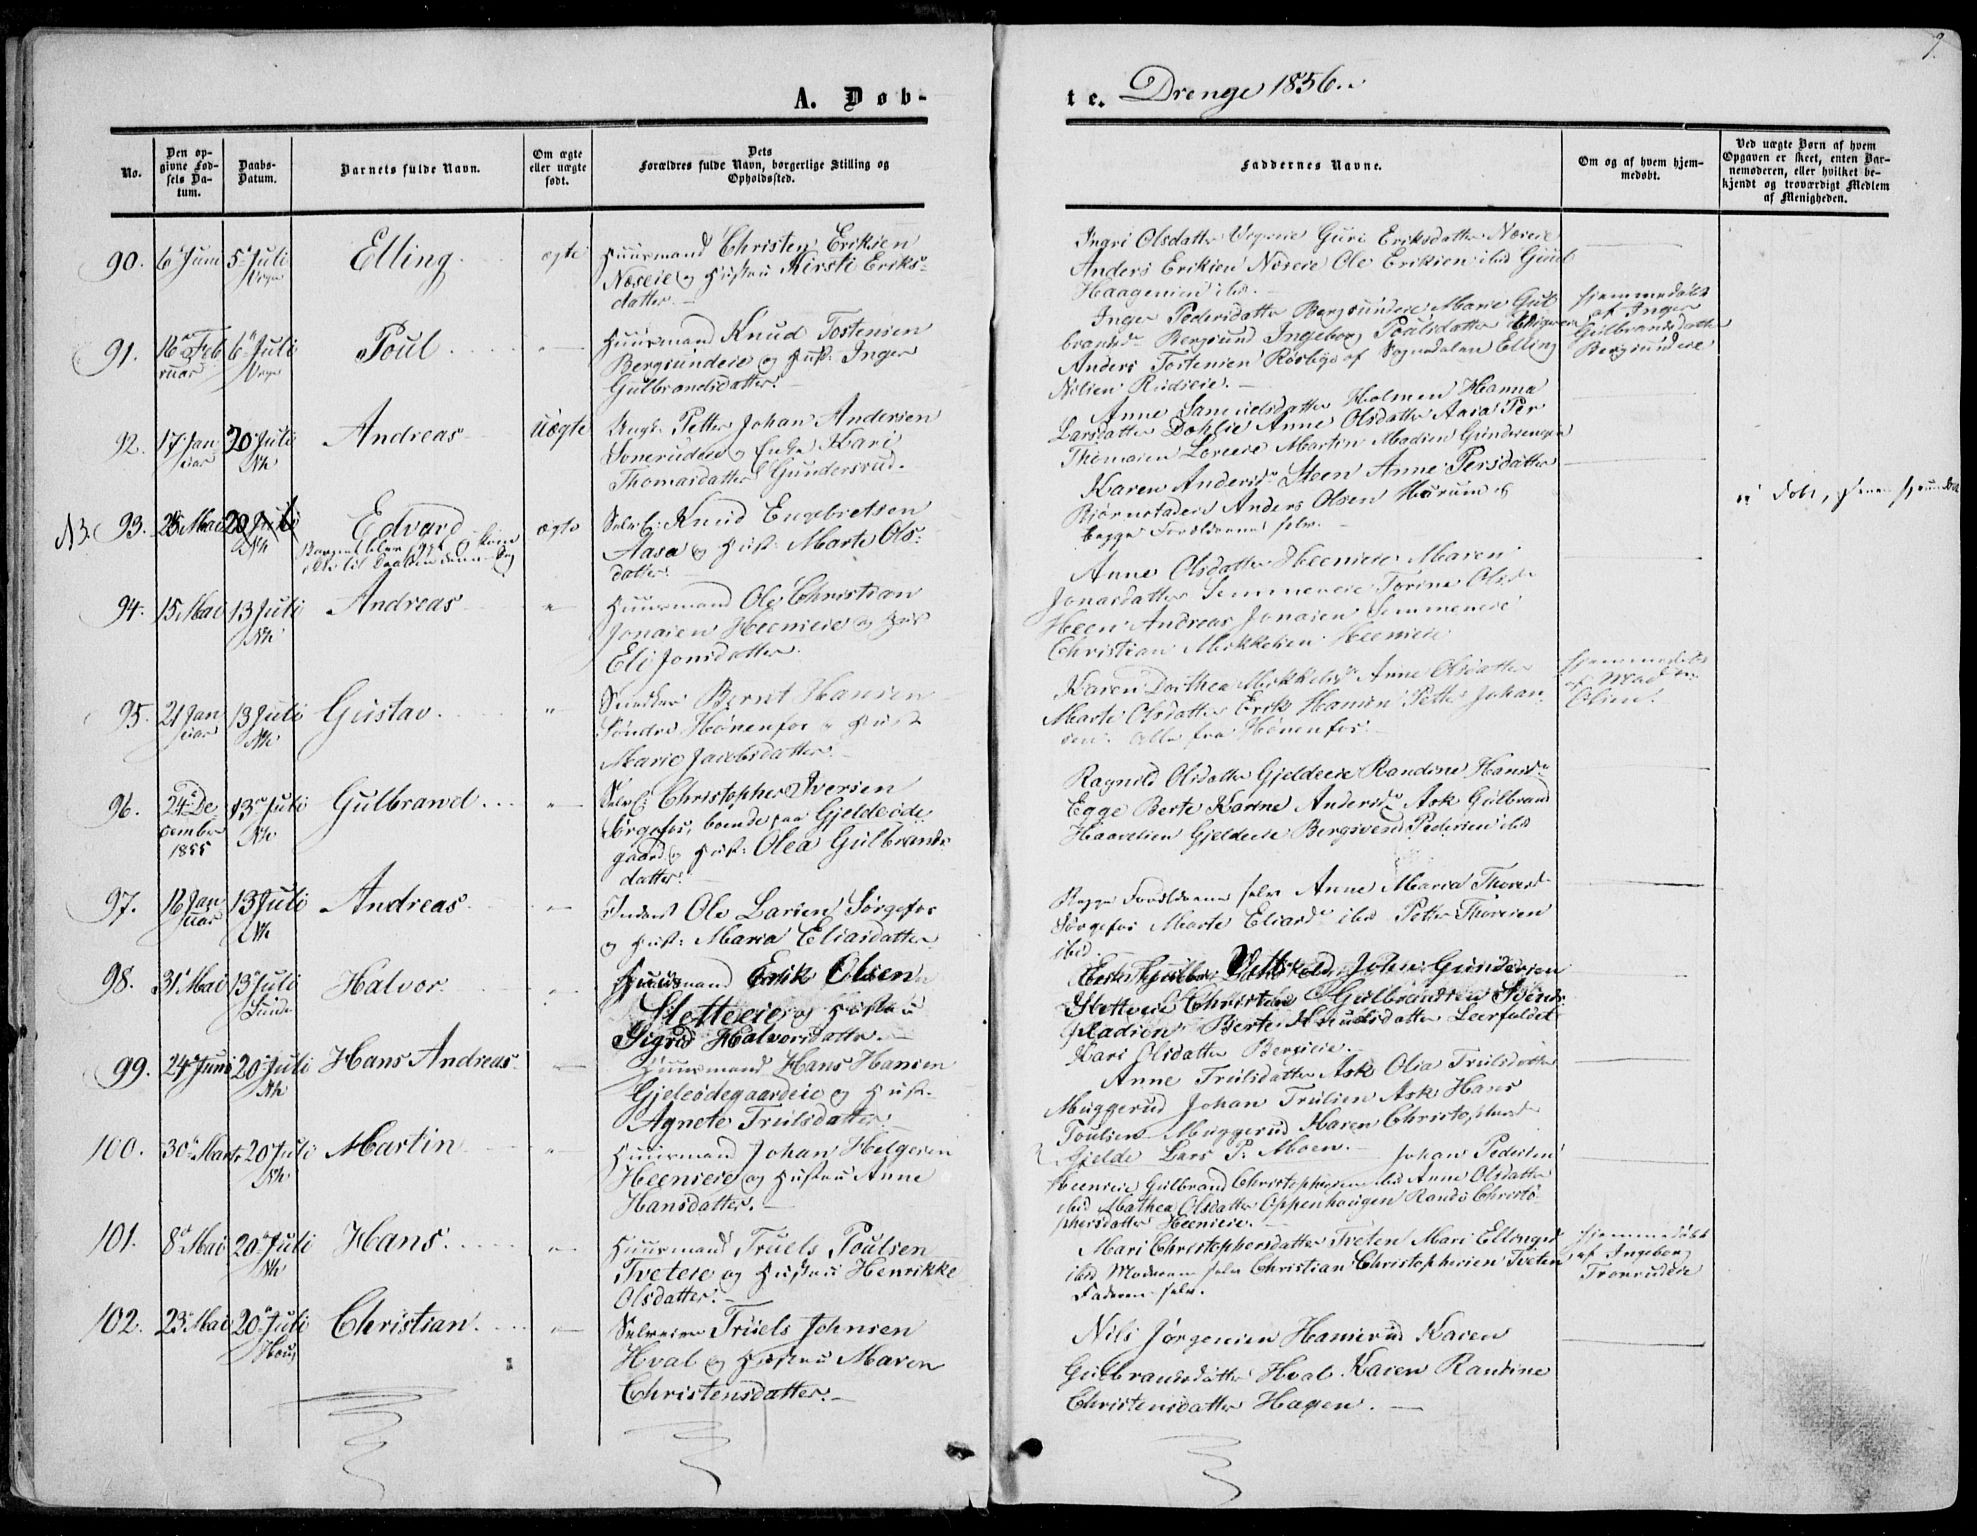 9.
A. Døb-
te. Drenge 1856.
No.
Den op-
givne Fød-
sels Da-
tum.
Daabs-
Datum.
Barnets fulde Navn.
Om ægte
eller uægte
født.
Dets
Forældres fulde Navn, borgerlige Stilling og
Opholdssted.
Faddernes Navne.
Om og af hvem hjem-
medøbt.
Ved uægte Børn af hvem
Opgaven er skeet, enten Bar-
nemoderen, eller hvilket be-
kjendt og troværdigt Medlem
af Menigheden.
90. 6 Juni 5 Juli Elling ægte Huusmand Christen Eriksen
Næseie og Hustru Kirsti Eriks-
datter.
Ingri Olsdatter Guri Eriksdatter Næseie
Anders Eriksen Næseie Ole Eriksen ibd
Haagensen ibd.
91. 16 Feb 6 Juli Poul Huusmand Knud Tostensen
ruar
Bergsundeie og Hust: Inger
Gulbrandsdatter.
Inger Pedersdatter Bergsundeie Marie Gul
brandsdr Bergsund Ingeborg Poulsdatter
Anders Tostensen af Sognedalen Elling
Nilsen Rudseie.
hjemmedøbt
af Inger
Gulbrandsdatter
Bergsundeie
92. 17 Jan 20 Juli Andreas Uægte Ungk. Petter Johan Andersen
uar Nh
og Enke Kari
Thomasdatter Gundersrud.
Anne Samuelsdatter Holmen Hanna
Larsdatter Dahlie Anne Olsdatter Aasa Per
Thomasen Martin Madsen
NB. 93. 28 Mai 20 Juli Edvard ægte Selv: Knud Engebretsen
Nh
Aasa og Hust: Marte Ols-
datter.
Karen Andersdr Steen Anne Persdatter
Anders Olsen Harum og
begge Forældrene selv.
94. 15 Mai 13 Juli Andreas Huusmand Ole Christian
Nh
Jonasen Heenseie og Hust
Eli Jonsdatter.
Anne Olsdatter Heenseie Maren
Jonasdatter Semmeneie Torine Olsdr
Heen Andreas Jonasen Semmeneie
Christian Mikkelsen Heenseie
95. 21 Jan 13 Juli Gustav. Snedker Bernt Hansen
uar Nh
Søndre Hønenfos og Hust
Marie Jacobsdatter.
Karen Dorthea Mikkelsdr Anne Olsdatter
Marte Olsdatter Erik Hansen Petter Johan-
sen. Alle fra Hønenfos.
hjemmedøbt
af Mad
Olsen.
96. 24 De 13 Juli Gulbrand. Selv: Christopher Iversen
cember Nh
1855
Sørgefos, boende paa Gjeldeøde
gaard og Hust: Olea Gulbrands
datter.
Ragnild Olsdatter Gjeldeeie Randine Hansdr
Egge Berte Karine Andersdr Ask Gulbrand
Haavelsen Gjeldeeie Bergsvend Pedersen ibd
97. 16 Jan 13 Juli Andreas Inderst Ole Larsen Sørgefos
uar Nh
og Hust: Maria Eliasdatter
Begge Forældrene selv Anne Maria Thorersdr
Sørgefos Marte Eliasdr ibd Petter Thoresen
ibd
98. 31 Mai 13 Juli Halvor. Huusmand Erik Olsen
Sletteeie og Hustru
Sigrid Halvorsdatter.
John Gundersen
Sletteeie Christen Gulbrandsen
Madsen Berte Knudsdatter Leerfaldet
Kari Olsdatter Bergseie.
99. 24 Juni 20 Juli Hans Andreas Huusmand Hans Hansen
Nh
Gjeldeødegaardeie og Hust.
Agnete Trulsdatter.
Anne Trulsdatter Ask Olia Trulsdatter
Muggerud Johan Trulsen Ask Hans
Poulsen Muggerud Maren Christophersdr
Gjelde Lars P. Moen.
100. 30 Marts 20 Juli Martin Huusmand Johan Helgesen
Nh
Heenseie og Hustru Anne
Hansdatter.
Johan Pedersen
Heenseie Gulbrand Christophersen ibd Anne Olsdatter
ibd Mathea Olsdatter Oppenhaugen Randi Christo-
phersdatter Heenseie.
101. 8 Mai 20 Juli Hans. Huusmand Truels Poulsen
Nh
Tveteie og Hustru Henrikke
Olsdatter.
Mari Christophersdatter Tveten Mari Ellingsdr
ibd Moderen selv Christian Christophersen Tveten
Faderen selv.
hjemmedøbt
af Ingeborg
Tronrudeie
102. 23 Mai 20 Juli Christian. Selveier Truels Johnsen
Houg
Hval og Hustru Maren
Christensdatter.
Nils Jørgensen Hamsrud Karen
Gulbrandsdatter Hval Karen Randine
Christensdatter Hagen.